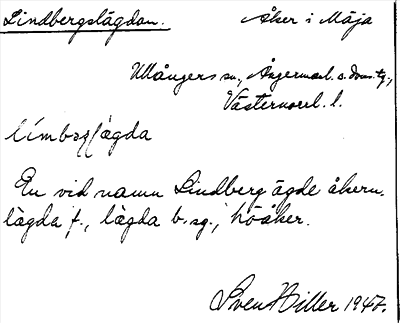 Lindbergslägdan. Åker i Mäja
Ullångers sn, Ångermanl. s. doms. tg.,
Västernorrl. l.
En vid namn Lindberg ägde åkern.
lägda f., lägda b. sg., höåker.
Sven Hiller 1947.